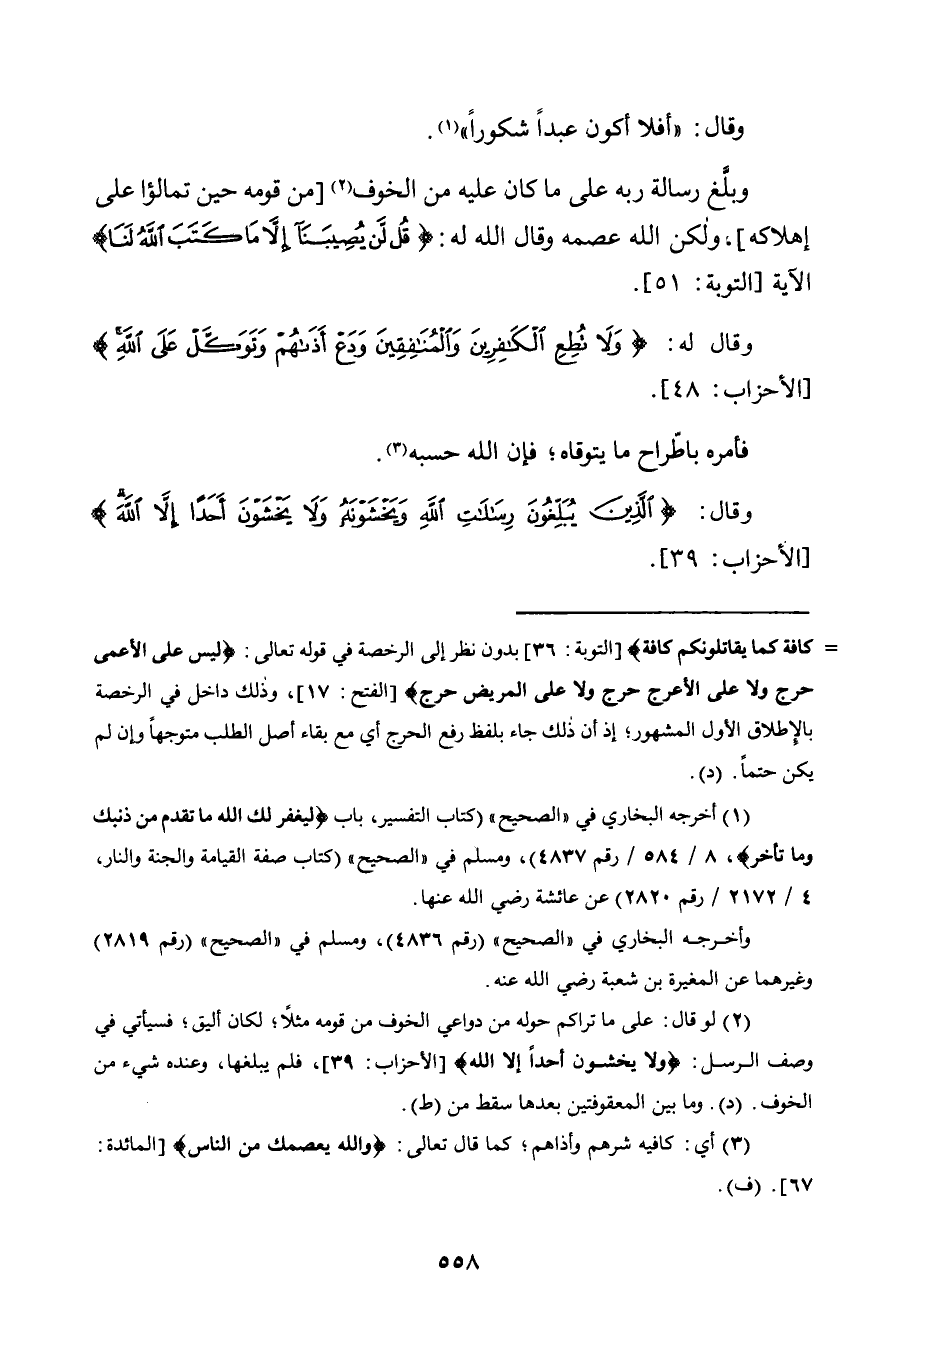 وقال: «أفلا أكون عبداً شكوراً»(١).
وبلَّغ رسالة ربه على ما كان عليه من الخوف(٢) [من قومه حين تمالؤا على
إهلاكه]، ولٰكن الله عصمه وقال الله له: ﴿ قُل لَّن يُصِيبَنَآ إِلَّا مَا كَتَبَ ٱللَّهُ لَنَا﴾
الآية [التوبة: ٥١].
وقال له: ﴿ وَلَا تُطِعِ ٱلْكَٰفِرِينَ وَٱلْمُنَٰفِقِينَ وَدَعْ أَذَىٰهُمْ وَتَوَكَّلْ عَلَى ٱللَّهِ ۚ ﴾
[الأحزاب: ٤٨].
فأمره باطّراح ما يتوقاه؛ فإن الله حسبه(٣).
وقال: ﴿ ٱلَّذِينَ يُبَلِّغُونَ رِسَٰلَٰتِ ٱللَّهِ وَيَخْشَوْنَهُۥ وَلَا يَخْشَوْنَ أَحَدًا إِلَّا ٱللَّهَ ۗ ﴾
[الأحزاب: ٣٩].
= كافة كما يقاتلونكم كافة﴾ [التوبة: ٣٦] بدون نظر إلى الرخصة في قوله تعالى: ﴿ليس على الأعمى
حرج ولا على الأعرج حرج ولا على المريض حرج﴾ [الفتح: ١٧]، وذٰلك داخل في الرخصة
بالإطلاق الأول المشهور؛ إذ أن ذٰلك جاء بلفظ رفع الحرج أي مع بقاء أصل الطلب متوجهاً وإن لم
يكن حتماً. (د).
(١) أخرجه البخاري في «الصحيح» (كتاب التفسير، باب ﴿ليغفر لك الله ما تقدم من ذنبك
وما تأخر﴾، ٨ / ٥٨٤ / رقم ٤٨٣٧)، ومسلم في «الصحيح» (كتاب صفة القيامة والجنة والنار،
٤ / ٢١٧٢ / رقم ٢٨٢٠) عن عائشة رضي الله عنها.
وأخرجه البخاري في «الصحيح» (رقم ٤٨٣٦)، ومسلم في «الصحيح» (رقم ٢٨١٩)
وغيرهما عن المغيرة بن شعبة رضي الله عنه.
(٢) لو قال: على ما تراكم حوله من دواعي الخوف من قومه مثلاً؛ لكان أليق؛ فسيأتي في
وصف الرسل: ﴿ولا يخشون أحداً إلا الله﴾ [الأحزاب: ٣٩]، فلم يبلغها، وعنده شيء من
الخوف. (د). وما بين المعقوفتين بعدها سقط من (ط).
(٣) أي: كافيه شرهم وأذاهم؛ كما قال تعالى: ﴿والله يعصمك من الناس﴾ [المائدة:
٦٧]. (ف).
٥٥٨